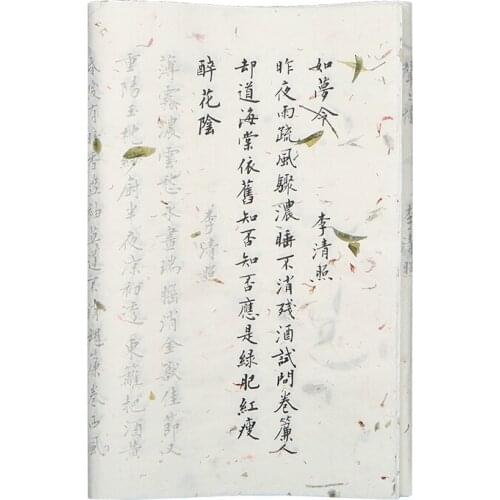 如夢令
李清照
昨夜雨疏風驟濃睡不消残酒試問卷簾人
却道海棠依舊知否知否應是綠肥紅瘦
醉花陰
李清照
薄霧濃雲愁永晝瑞腦消金獸佳節又
重陽玉枕紗厨半夜涼初透東籬把酒黃
昏後有暗香盈袖莫道不消魂簾卷西風